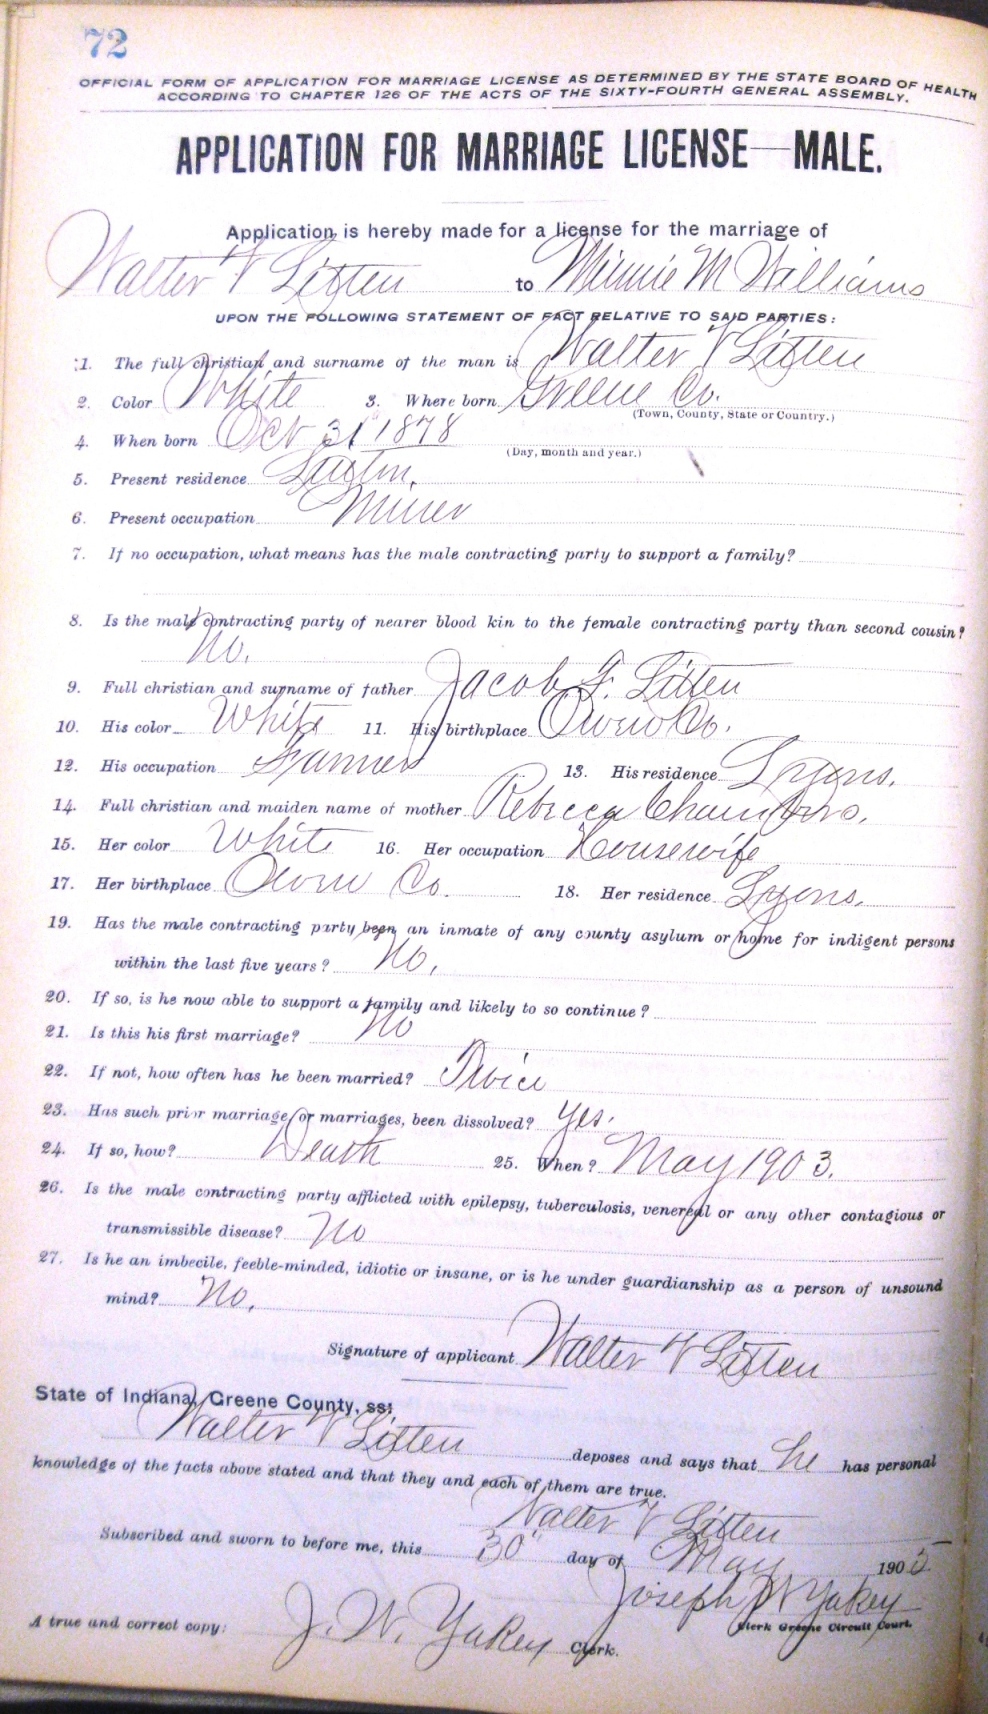 72
OFFICIAL FORM OF APPLICATION FOR MARRIAGE LICENSE AS DETERMINED BY THE STATE BOARD OF HEALTH
ACCORDING TO CHAPTER 126 OF THE ACTS OF THE SIXTY-FOURTH GENERAL ASSEMBLY.
APPLICATION FOR MARRIAGE LICENSE—MALE.
Application is hereby made for a license for the marriage of
Walter V Litten to Minnie M Williams
UPON THE FOLLOWING STATEMENT OF FACT RELATIVE TO SAID PARTIES:
1. The full christian and surname of the man is Walter V Litten
2. Color White 3. Where born Greene Co.
(Town, County, State or Country.)
4. When born Oct 31 1878
(Day, month and year.)
5. Present residence
6. Present occupation Miner
7. If no occupation, what means has the male contracting party to support a family?
8. Is the male contracting party of nearer blood kin to the female contracting party than second cousin?
No.
9. Full christian and surname of father Jacob F. Litten
10. His color White 11. His birthplace Owen Co.
12. His occupation Farmer 13. His residence Lyons.
14. Full christian and maiden name of mother Rebecca Chambers.
15. Her color White 16. Her occupation Housewife
17. Her birthplace Owen Co. 18. Her residence Lyons.
19. Has the male contracting party been an inmate of any county asylum or home for indigent persons
within the last five years? No.
20. If so, is he now able to support a family and likely to so continue?
21. Is this his first marriage? No
22. If not, how often has he been married? Twice
23. Has such prior marriage, or marriages, been dissolved? Yes.
24. If so, how? Death 25. When? May 1903.
26. Is the male contracting party afflicted with epilepsy, tuberculosis, venereal or any other contagious or
transmissible disease? No
27. Is he an imbecile, feeble-minded, idiotic or insane, or is he under guardianship as a person of unsound
mind? No.
Signature of applicant Walter V Litten
State of Indiana, Greene County, ss:
Walter V Litten deposes and says that he has personal
knowledge of the facts above stated and that they and each of them are true.
Walter V Litten
Subscribed and sworn to before me, this 30" day of May 1905
Joseph W Yakey
Clerk Greene Circuit Court.
A true and correct copy: J. W. Yakey Clerk.